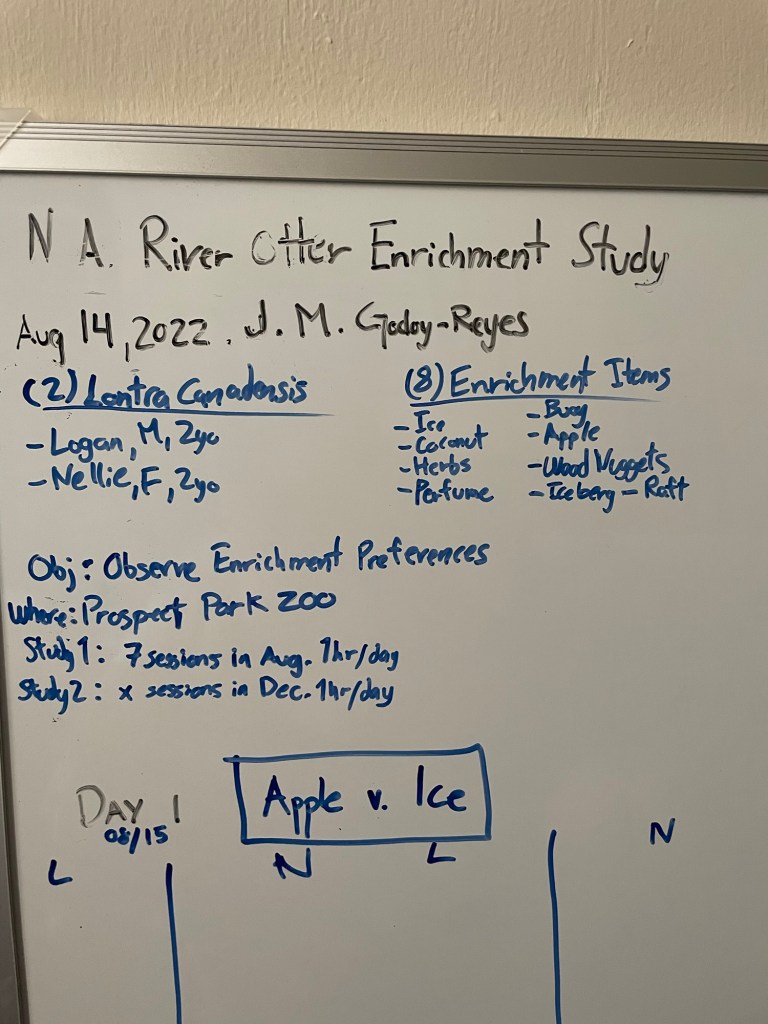 N A. River Otter Enrichment Study
Aug 14, 2022. J. M. Godoy-Reyes
(2) Lontra Canadensis
- Logan, M, 2yo
- Nellie, F, 2yo
(8) Enrichment Items
- Ice
- Coconut
- Herbs
- Perfume
- Buoy
- Apple
- Wood Nuggets
- Iceberg - Raft
Obj: Observe Enrichment Preferences
Where: Prospect Park Zoo
Study 1: 7 sessions in Aug. 1hr/day
Study 2: x sessions in Dec. 1hr/day
DAY 1
08/15
Apple v. Ice
L
N L
N